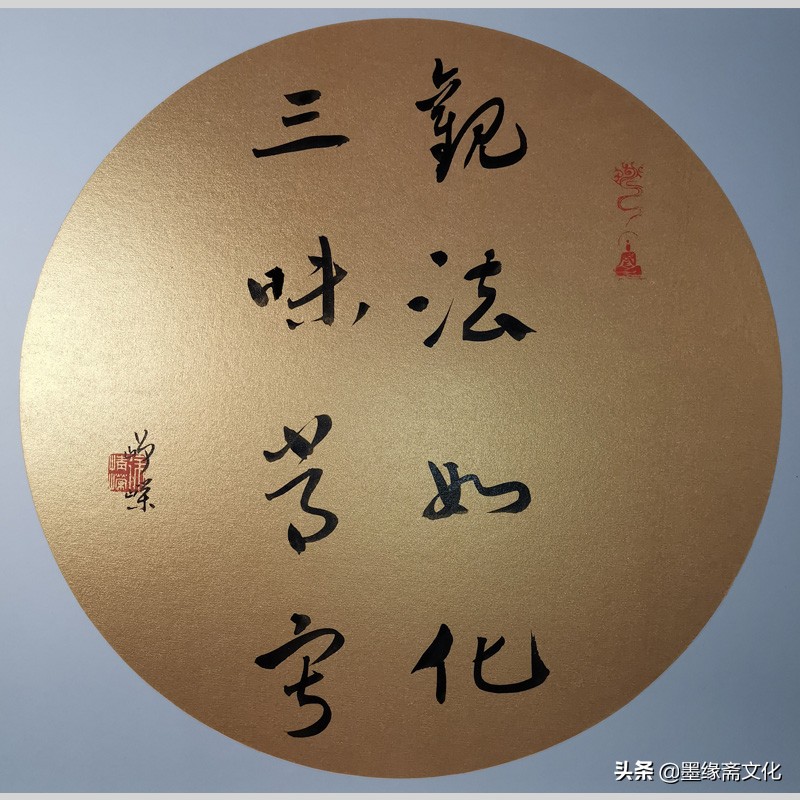 觀法如化
三昧常寂
峥嵘
头条 @墨缘斋文化